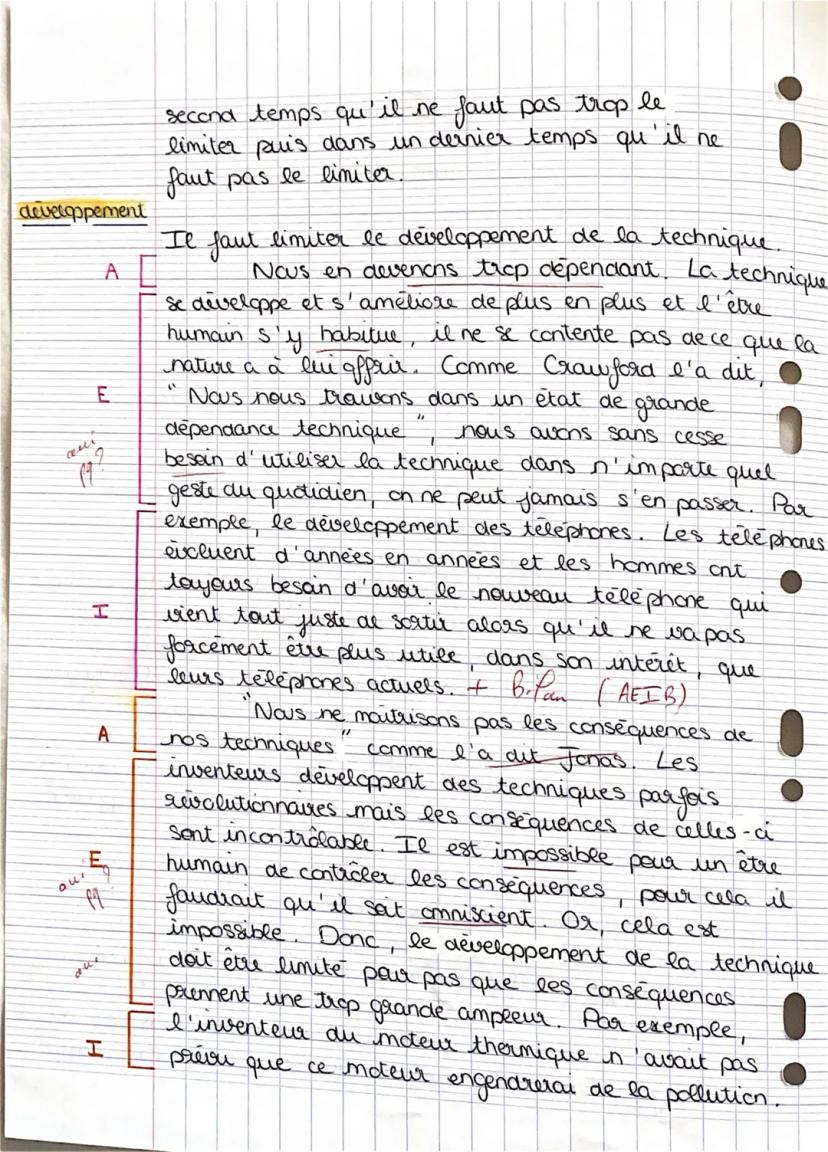 second temps qu'il ne faut pas trop le
limiter puis dans un dernier temps qu'il ne
faut pas le limiter.
développement
Il faut limiter le développement de la technique.
A
Nous en devenons trop dépendant. La technique
se développe et s'améliore de plus en plus et l'être
humain s'y habitue, il ne se contente pas de ce que la
nature a à lui offrir. Comme Crawford l'a dit,
E
" Nous nous trouvons dans un état de grande
dépendance technique ", nous avons sans cesse
oui
pq?
besoin d'utiliser la technique dans n'importe quel
geste du quotidien, on ne peut jamais s'en passer. Par
exemple, le développement des téléphones. Les téléphones
évoluent d'années en années et les hommes ont
toujours besoin d'avoir le nouveau téléphone qui
I
vient tout juste de sortir alors qu'il ne va pas
forcément être plus utile, dans son intérêt, que
leurs téléphones actuels. + Bilan (AEIB)
"Nous ne maîtrisons pas les conséquences de
A
nos techniques" comme l'a dit Jonas. Les
inventeurs développent des techniques parfois
révolutionnaires mais les conséquences de celles-ci
sont incontrôlable. Il est impossible pour un être
E
humain de contrôler les conséquences, pour cela il
oui
pq?
faudrait qu'il soit omniscient. Or, cela est
impossible. Donc, le développement de la technique
oui
doit être limité pour pas que les conséquences
prennent une trop grande ampleur. Par exemple,
I
l'inventeur du moteur thermique n'avait pas
prévu que ce moteur engendrerai de la pollution.